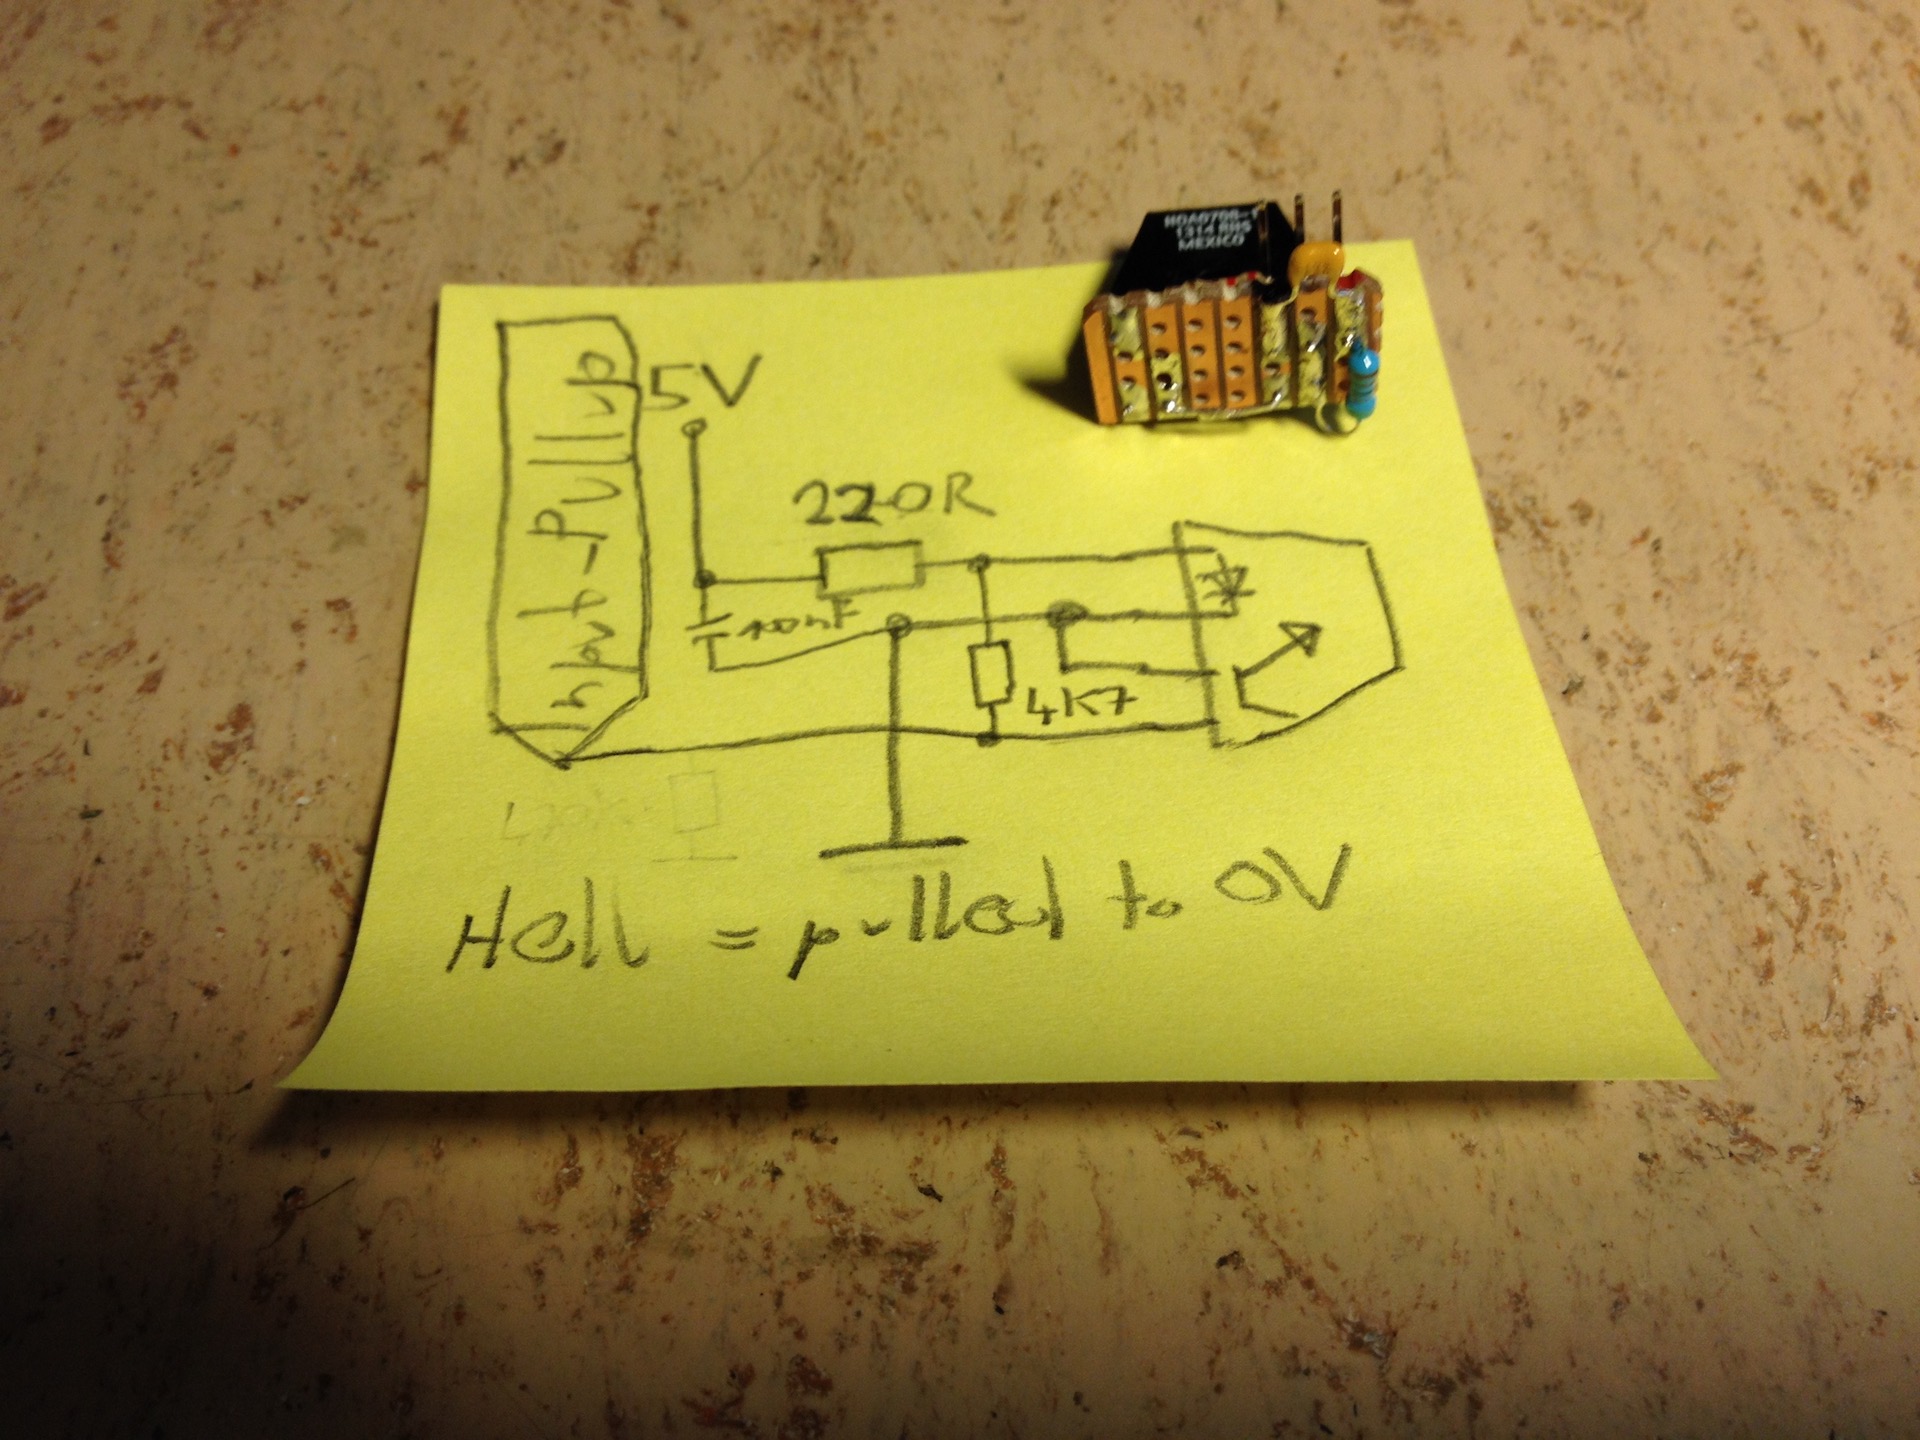 HOA0708-1
1314 RHS
MEXICO
Input-Pullup
5V
220R
100nF
4K7
Hell = pulled to 0V